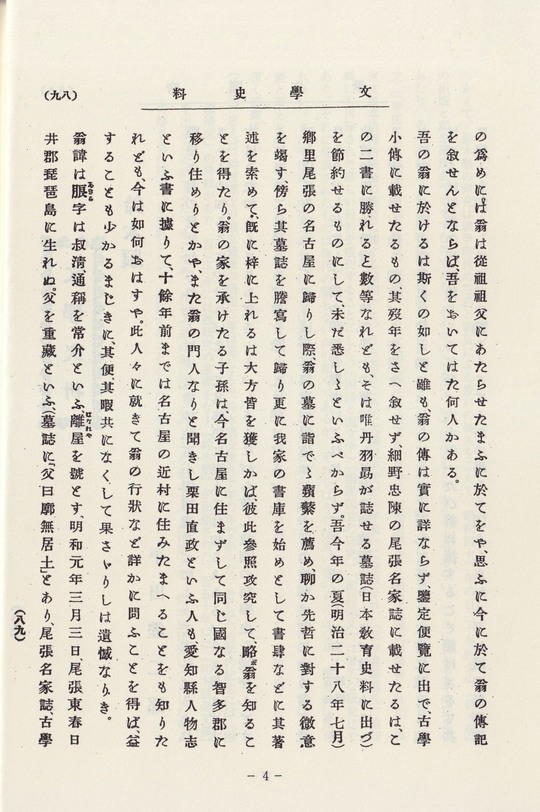 文學史料
(八九)
の爲めには翁は從祖祖父にあたらせたまふに於てをや、思ふに今に於て翁の傳記
を敘せんとならば、吾をおいてはた何人かある。
吾の翁に於けるは斯くの如しと雖も、翁の傳は實に詳ならず、鑒定便覽に出で、古學
小傳に載せたるもの、其歿年をさへ敘せず、細野忠陳の尾張名家誌に載せたるは、こ
の二書に勝れると數等なれども、そは唯丹羽勗が誌せる墓誌(日本敎育史料に出づ)
を節約せるものにして、未だ悉しゝといふべからず。吾今年の夏(明治二十八年七月)
鄕里尾張の名古屋に歸りし際、翁の墓に詣でゝ蘋蘩を薦め、聊か先哲に對する微意
を竭す、傍ら其墓誌を謄寫して歸り更に我家の書庫を始めとして書肆などに其著
述を索めて、既に梓に上れるは大方皆を獲しかば、彼此參照攻究して、略ぼ翁を知るこ
とを得たり。翁の家を承けたる子孫は、今名古屋に住まずして同じ國なる智多郡に
移り住めりとかや、また翁の門人なりと聞きし栗田直政といふ人も愛知縣人物志
といふ書に據りて、十餘年前までは名古屋の近村に住みたまへることをも知りた
れども、今は如何おはすや。此人々に就きて翁の行狀など詳かに問ふことを得ば、益
することも少かるまじきに、其便其暇共になくして果さゞりしは遺憾なりき。
翁諱は朖字は叔淸、通稱を常介といふ離屋を號とす、明和元年三月三日、尾張東春日
井郡琵琶島に生れぬ。父を重藏といふ(墓誌に「父曰廓無居士」とあり、尾張名家誌、古學
(八九)
- 4 -